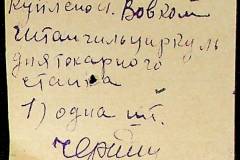 Куплено г. Вовком
Штангильциркуль
для токарного
станка
1) одна шт.